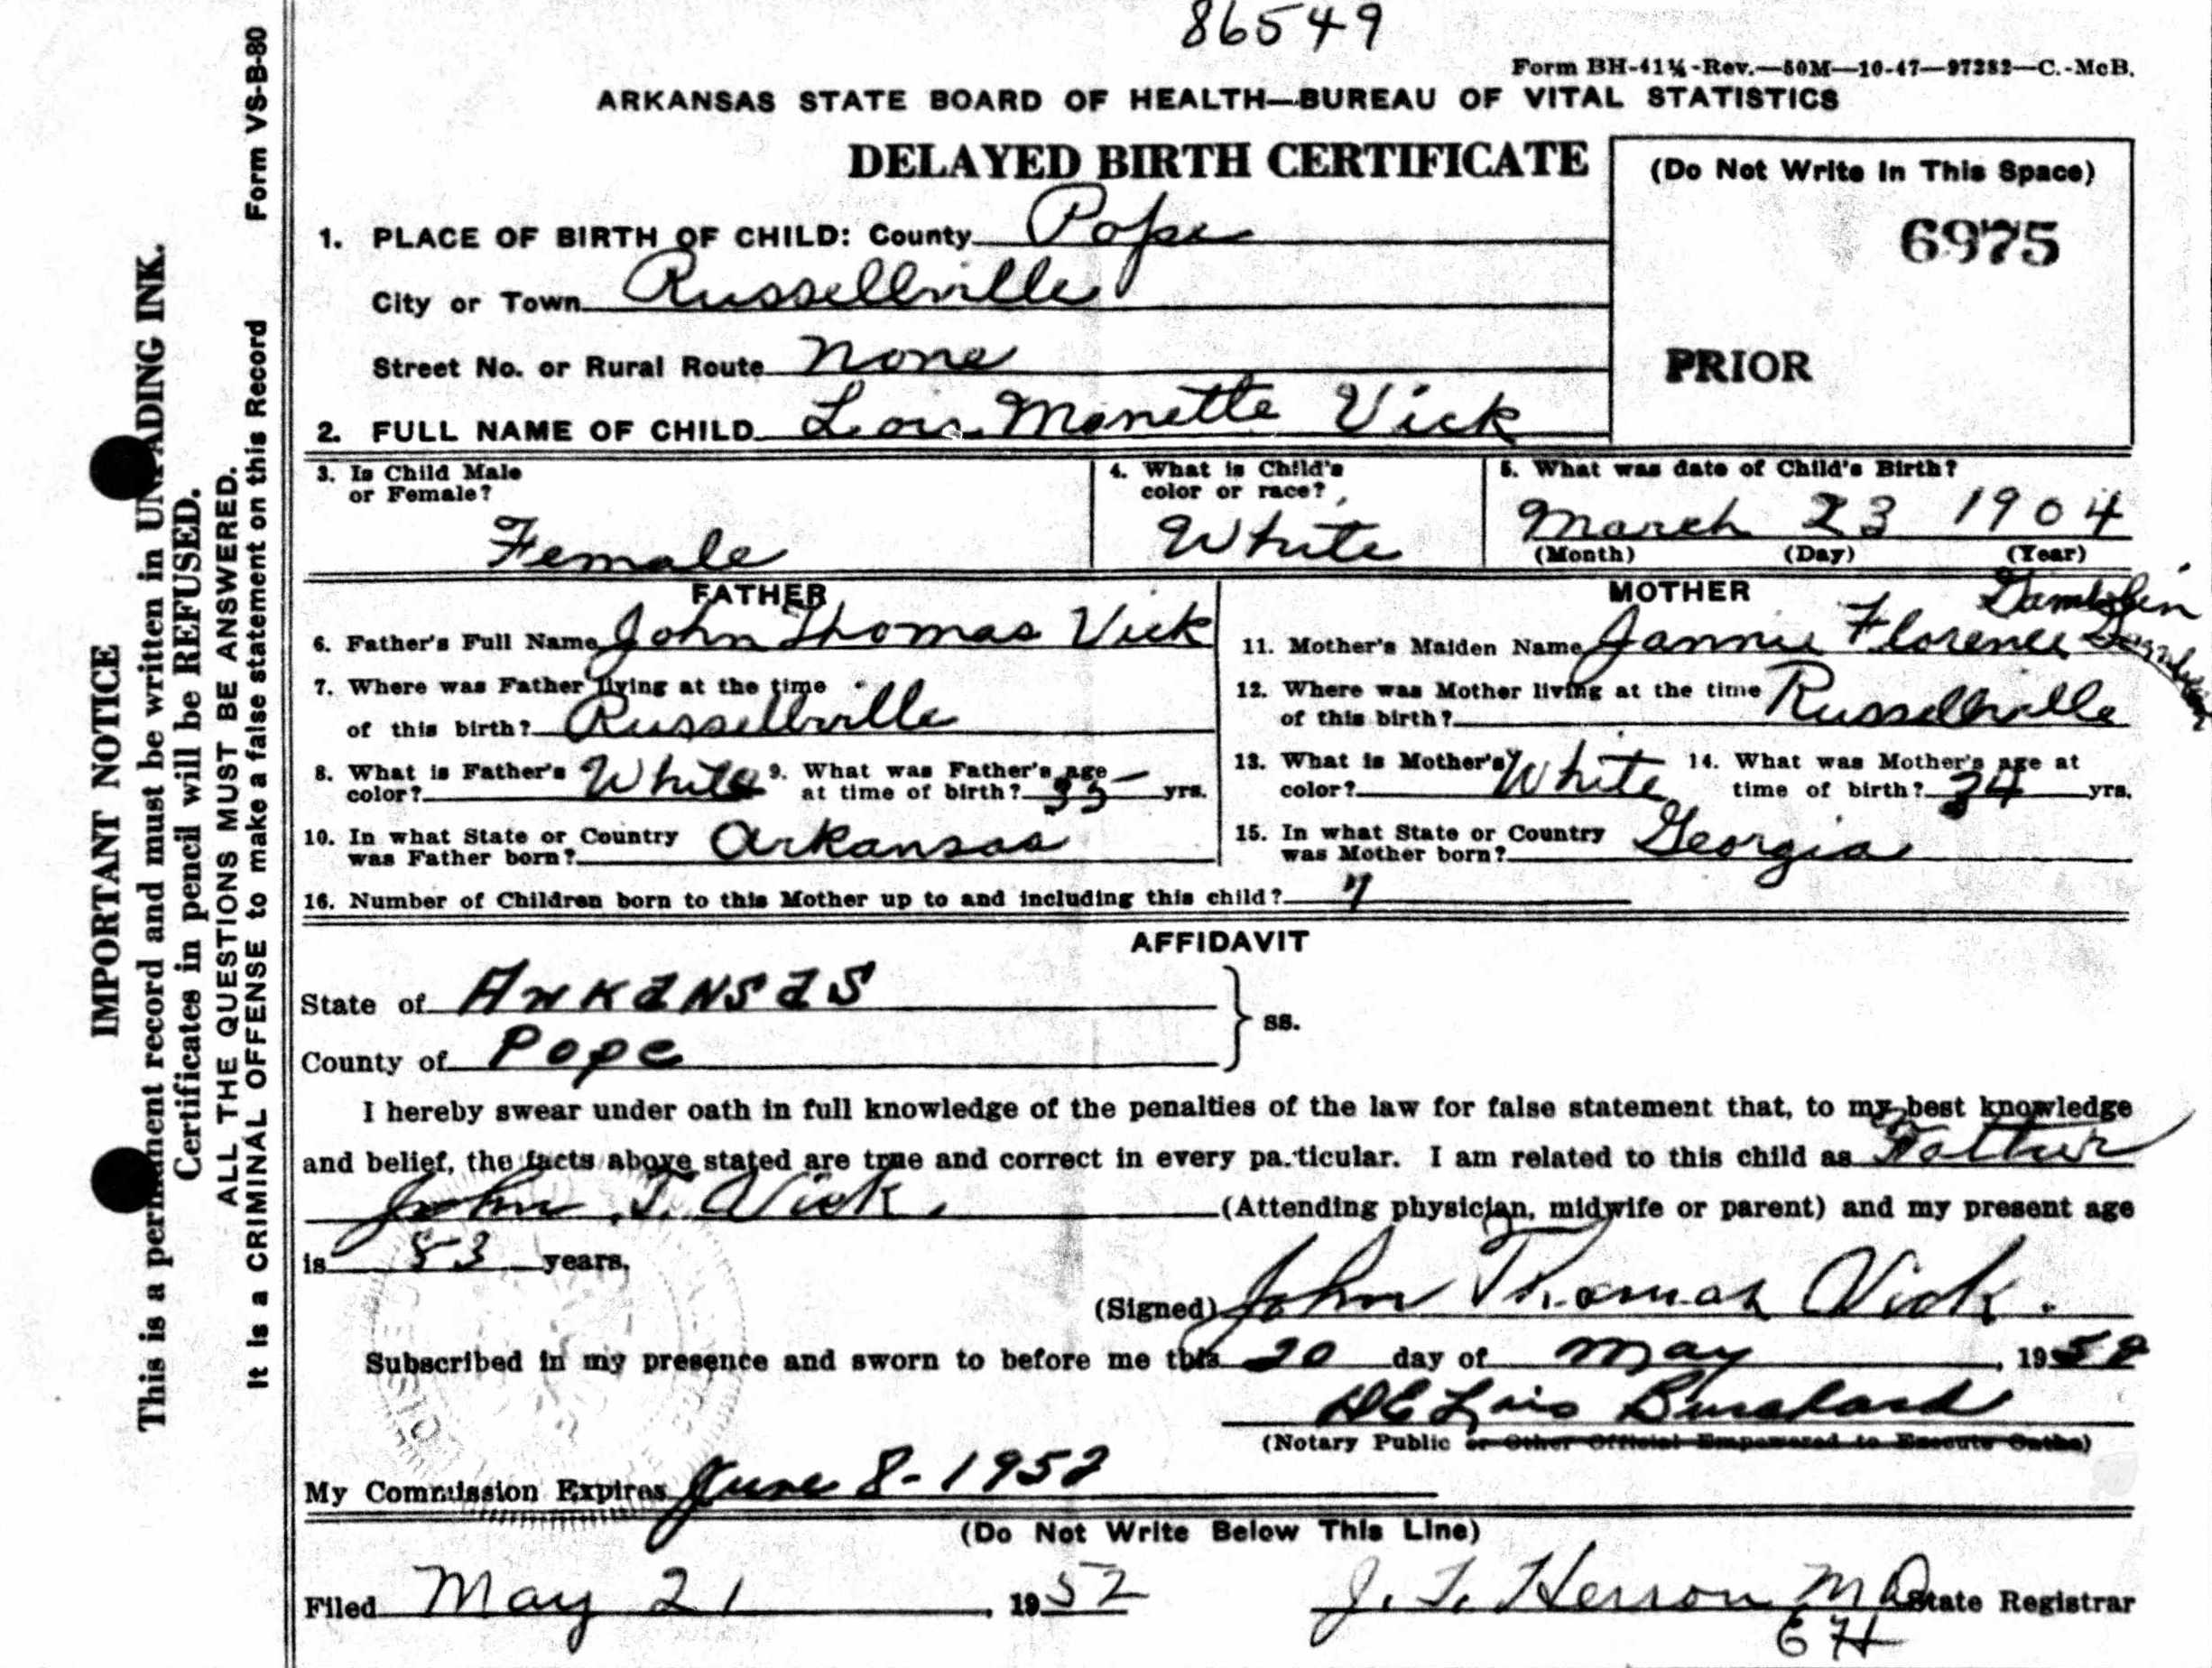 86549
Form BH-41½-Rev.—50M—10-47—97282—C.-McB.
ARKANSAS STATE BOARD OF HEALTH—BUREAU OF VITAL STATISTICS
DELAYED BIRTH CERTIFICATE
(Do Not Write In This Space)
6975
PRIOR
1. PLACE OF BIRTH OF CHILD: County Pope
City or Town Russellville
Street No. or Rural Route None
2. FULL NAME OF CHILD Lois Manette Vick
3. Is Child Male or Female? Female
4. What is Child's color or race? White
5. What was date of Child's Birth? March 23 1904
(Month) (Day) (Year)
FATHER
6. Father's Full Name John Thomas Vick
7. Where was Father living at the time
of this birth? Russellville
8. What is Father's color? White 9. What was Father's age at time of birth? 35 yrs.
10. In what State or Country was Father born? Arkansas
MOTHER
Gamblin
11. Mother's Maiden Name Jannie Florence
12. Where was Mother living at the time
of this birth? Russellville
13. What is Mother's color? White 14. What was Mother's age at time of birth? 34 yrs.
15. In what State or Country was Mother born? Georgia
16. Number of Children born to this Mother up to and including this child? 7
AFFIDAVIT
State of Arkansas
County of Pope
ss.
I hereby swear under oath in full knowledge of the penalties of the law for false statement that, to my best knowledge
and belief, the facts above stated are true and correct in every pa.ticular. I am related to this child as Father
John T. Vick. (Attending physician, midwife or parent) and my present age
is 83 years.
(Signed) John Thomas Vick.
Subscribed in my presence and sworn to before me this 20 day of May, 1952
(Notary Public or Other Official Empowered to Execute Oaths)
My Commission Expires June 8-1952
(Do Not Write Below This Line)
Filed May 21, 1952 J. T. Herron MD State Registrar
EH
Form VS-B-80
IMPORTANT NOTICE
This is a permanent record and must be written in UNFADING INK.
Certificates in pencil will be REFUSED.
ALL THE QUESTIONS MUST BE ANSWERED.
It is a CRIMINAL OFFENSE to make a false statement on this Record